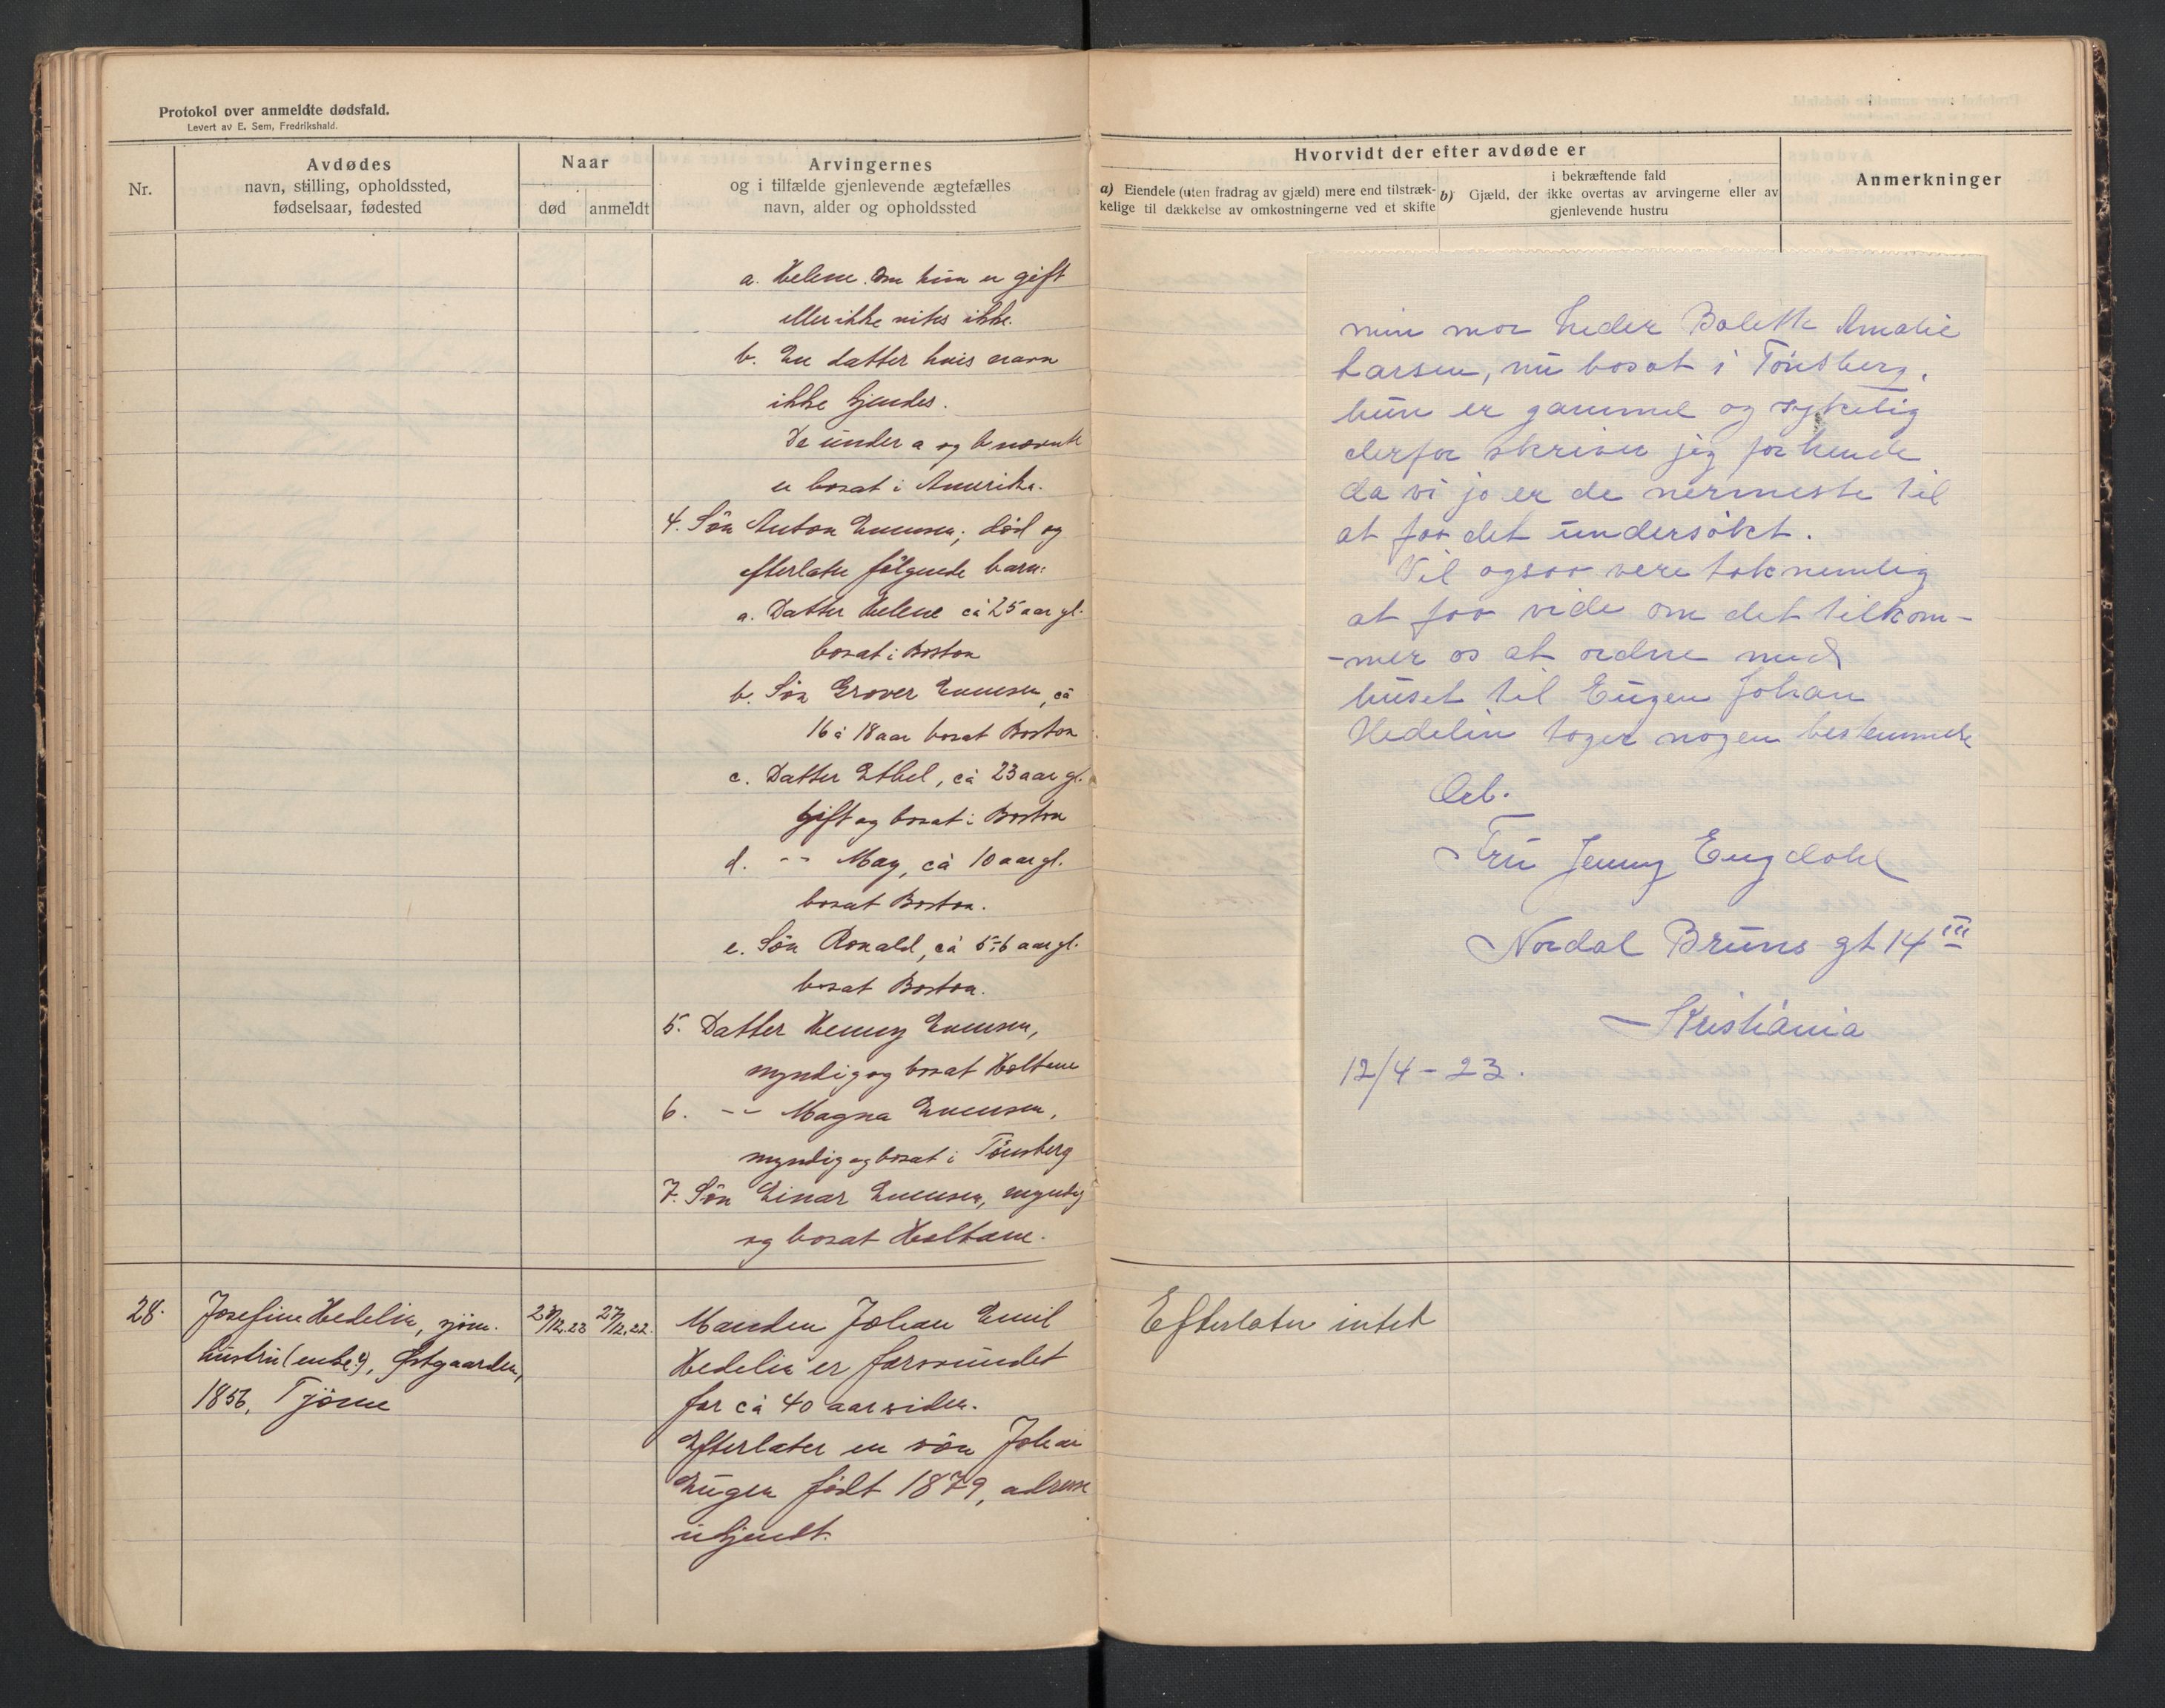 Protokol over anmeldte dødsfald.
Levert av E. Sem, Fredrikshald.
Nr.
Avdødes
navn, stilling, opholdssted,
fødselsaar, fødested
Naar
død
anmeldt
Arvingernes
og i tilfælde gjenlevende ægtefælles
navn, alder og opholdssted
a. Helene. Om hun er gift
eller ikke vites ikke.
b. En datter hvis navn
ikke kjendes.
De under a og b nævnte
er bosat i Amerika.
4. Søn Anton Evensen, død og
efterlater følgende barn:
a. Datter Helene ca 25 aar gl.
bosat i Boston
b. Søn Grover Evensen, ca
16 à 18 aar bosat Boston
c. Datter Ethel, ca 23 aar gl.
Gift og bosat i Boston
d. -"- May, ca 10 aar gl.
bosat Boston.
e. Søn Ronald, ca 5-6 aar gl.
bosat Boston.
5. Datter Henny Evensen,
myndig og bosat Holtane
6. -"- Magna Evensen,
myndig og bosat i Tønsberg
7. Søn Einar Evensen, myndig
og bosat Holtane.
28.
Josefine Hedelin, sjøm.
hustru (enke?), Østgaarden,
1856, Tjøme
27/12.22.
Manden Johan Emil
Hedelin er forsvundet
for ca 40 aar siden.
Efterlater en søn Johan
Eugen født 1879, adresse
ukjendt.
Hvorvidt der efter avdøde er
a) Eiendele (uten fradrag av gjæld) mere end tilstræk-
kelige til dækkelse av omkostningerne ved et skifte
i bekræftende fald
b) Gjæld, der ikke overtas av arvingerne eller av
gjenlevende hustru
Anmerkninger
min mor heder Bolette Amalie
Larsen, nu bosat i Tönsberg.
hun er gammel og sykelig
derfor skriver jeg for hende
da vi jo er de nermeste til
at faa det undersökt.
Vil ogsaa vere taknemlig
at faa vide om det tilkom-
-mer os at ordne med
huset til Eugen Johan
Hedelin tager nogen bestemmelse
Ærb.
Fru Jenny Engdahl
Nordal Bruns gt 14 III
Kristiania
12/4 - 23.
Efterlater intet